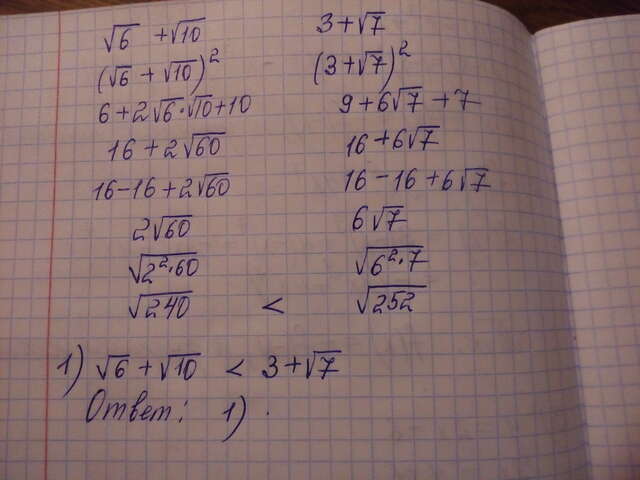 √6 + √10 3 + √7
(√6 + √10)² (3 + √7)²
6 + 2√6·√10 + 10 9 + 6√7 + 7
16 + 2√60 16 + 6√7
16 - 16 + 2√60 16 - 16 + 6√7
2√60 6√7
√2²·60 √6²·7
√240 < √252
1) √6 + √10 < 3 + √7
Ответ: 1) .